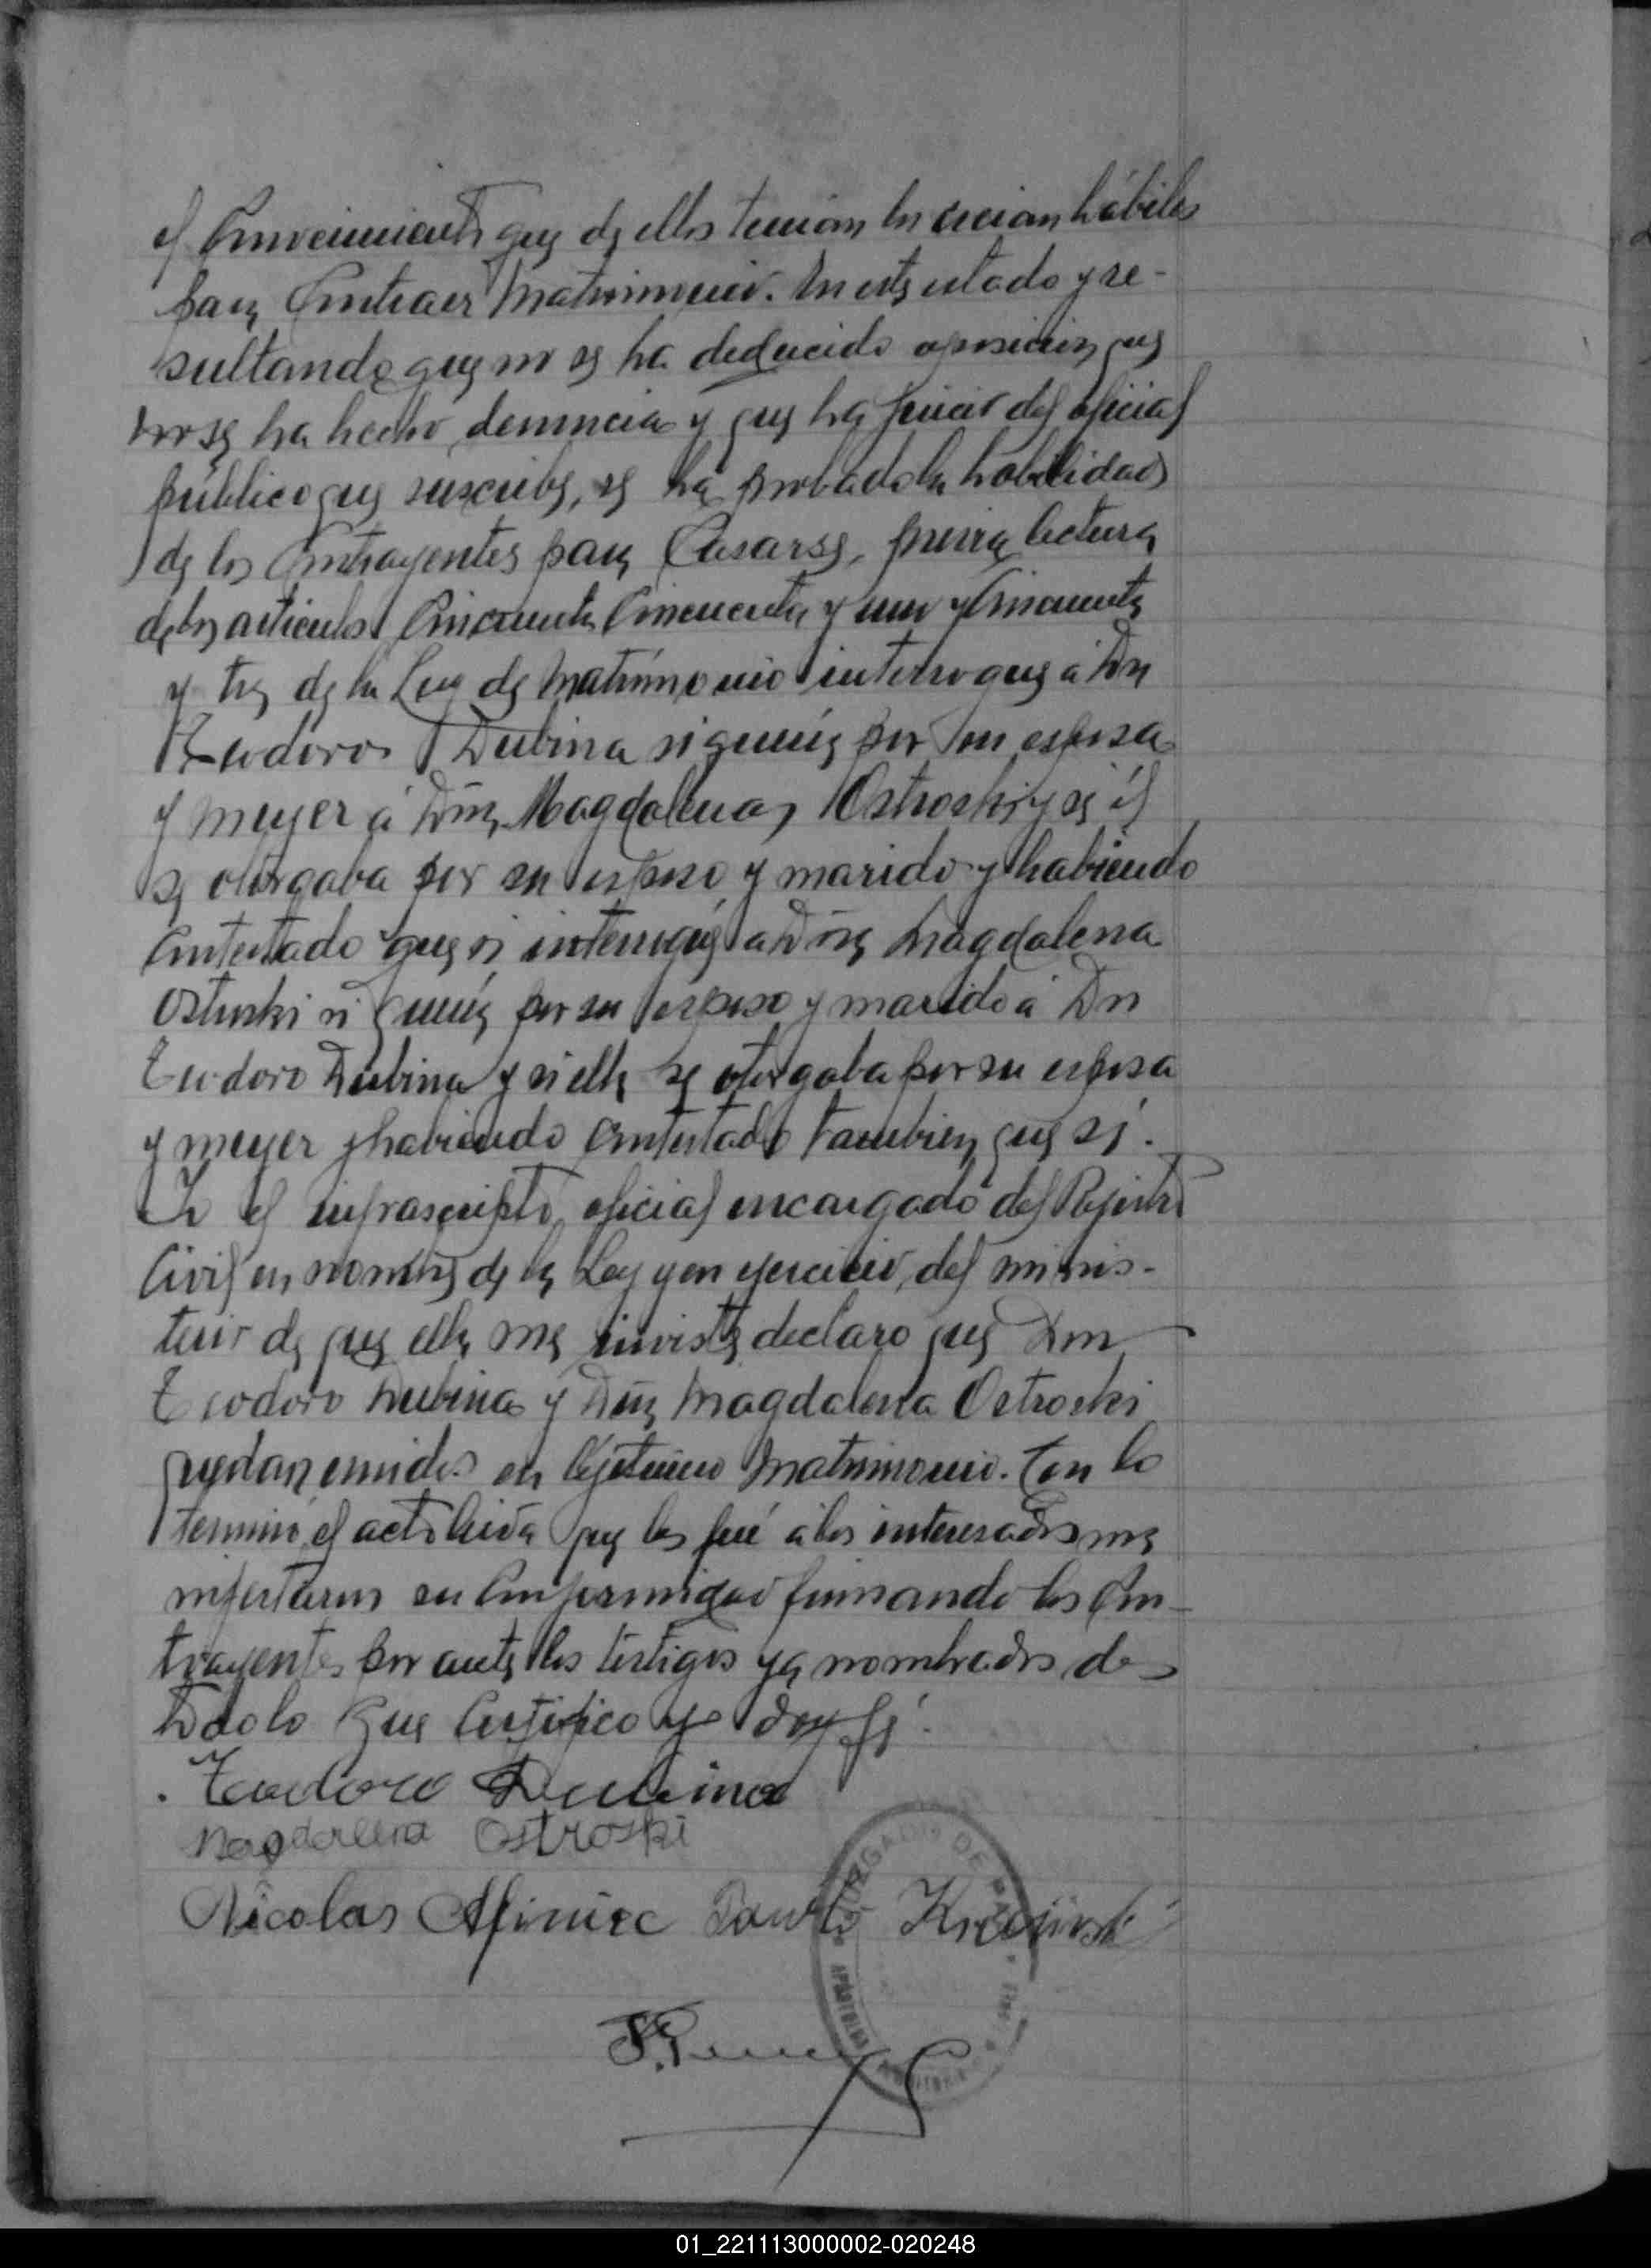 el Conocimiento que de ellos tenian los creian hábiles
para Contraer Matrimonio. En este estado y re-
sultando que no se ha deducido oposicion que
no se ha hecho denuncia y que ha juicio del oficial
público que suscribe, se ha probado la habilidad
de los Contrayentes para Casarse, previa lectura
de los articulos Cincuenta Cincuenta y uno y Cincuenta
y tres de la Ley de Matrimonio interrogue a Dn
Teodoro Dubina si queria por su esposa
y mujer á Dña Magdalena Ostroski y si él
se otorgaba por su esposo y marido y habiendo
Contestado que si interrogué a Dña Magdalena
Ostroski si queria por su esposo y marido a Dn
Teodoro Dubina y si ella se otorgaba por su esposa
y mujer y habiendo Contestado tambien que si.
Yo el infrascripto, oficial encargado del Rejistro
Civil en nombre de la Ley y en ejercicio, del minis-
terio de que ella me inviste declaro que Don
Teodoro Dubina y Dña Magdalena Ostroski
quedan unidos en lejitimo Matrimonio. Con lo
terminó el acto leida que les fué a los interesados ma
nifestaron su Conformidad firmando los Con-
trayentes por ante los testigos ya nombrados, de
todo lo que Certifico y doy fé.
Teodoro Dubina
Magdalena Ostroski
Nicolas
JUZGADO DE PAZ
APOSTOLES
01_221113000002-020248